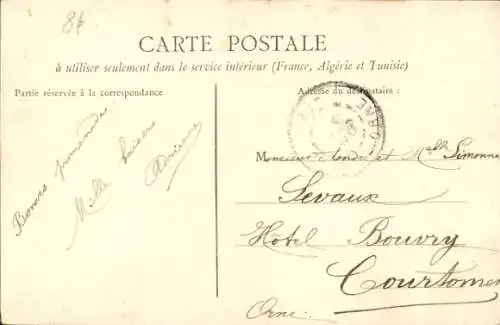 8f
CARTE POSTALE
à utiliser seulement dans le service intérieur (France, Algérie et Tunisie)
Partie réservée à la correspondance
Adresse du destinataire :
ORNE
Bonnes promenades
Mille baisers
Adrienne
Monsieur Andre et Melle Simonne
Levaux
Hôtel Bouvry
Courtomer
Orne